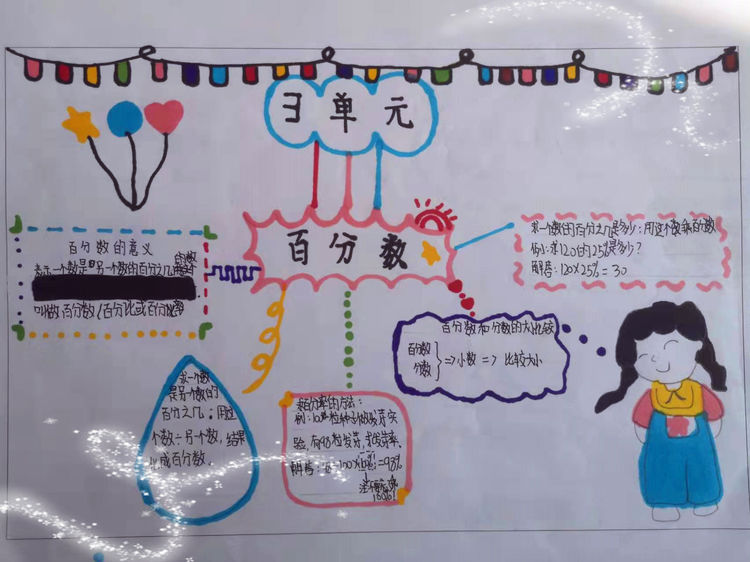 彐单元
百分数
百分数的意义
表示一个数是另一个数的百分之几的数
叫做百分数(百分比或百分率)
求一个数的百分之几是多少:用这个数乘百分数
例:求120的25%是多少?
解答:120×25%=30
百分数和分数的大小比较
百分数
分数
=>小数=>比较大小
求一个数
是另一个数的
百分之几:用这
个数÷另一个数,结果
化成百分数.
求百分率的方法:
例:100粒种子做发芽实
验,有98粒发芽,求发芽率.
解答:
=98%